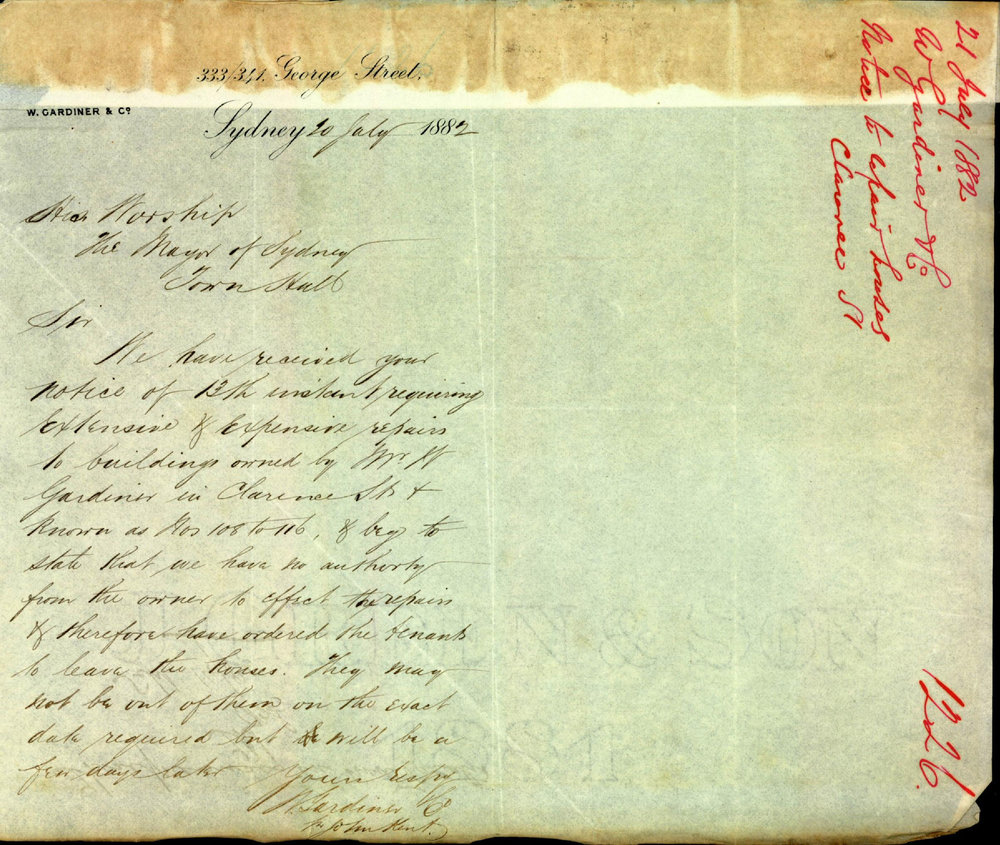 333/341. George Street,
W. GARDINER & Co.
Sydney 20 July 1882
His Worship
The Mayor of Sydney
Town Hall
Sir
We have received your
notice of 13th instant requiring
extensive & expensive repairs
to buildings owned by Mr. W
Gardiner in Clarence St &
known as Nos 108 to 116, & beg to
state that we have no authorty
from the owner to effect the repairs
& therefore have ordered the tenants
to leave the houses. They may
not be out of them on the exact
date required but will be a
few days later
Yours respy
W. Gardiner & Co
pr John Kent.
21 July 1882
W Gardiner & Co
Notice to repair houses
Clarence St
1226